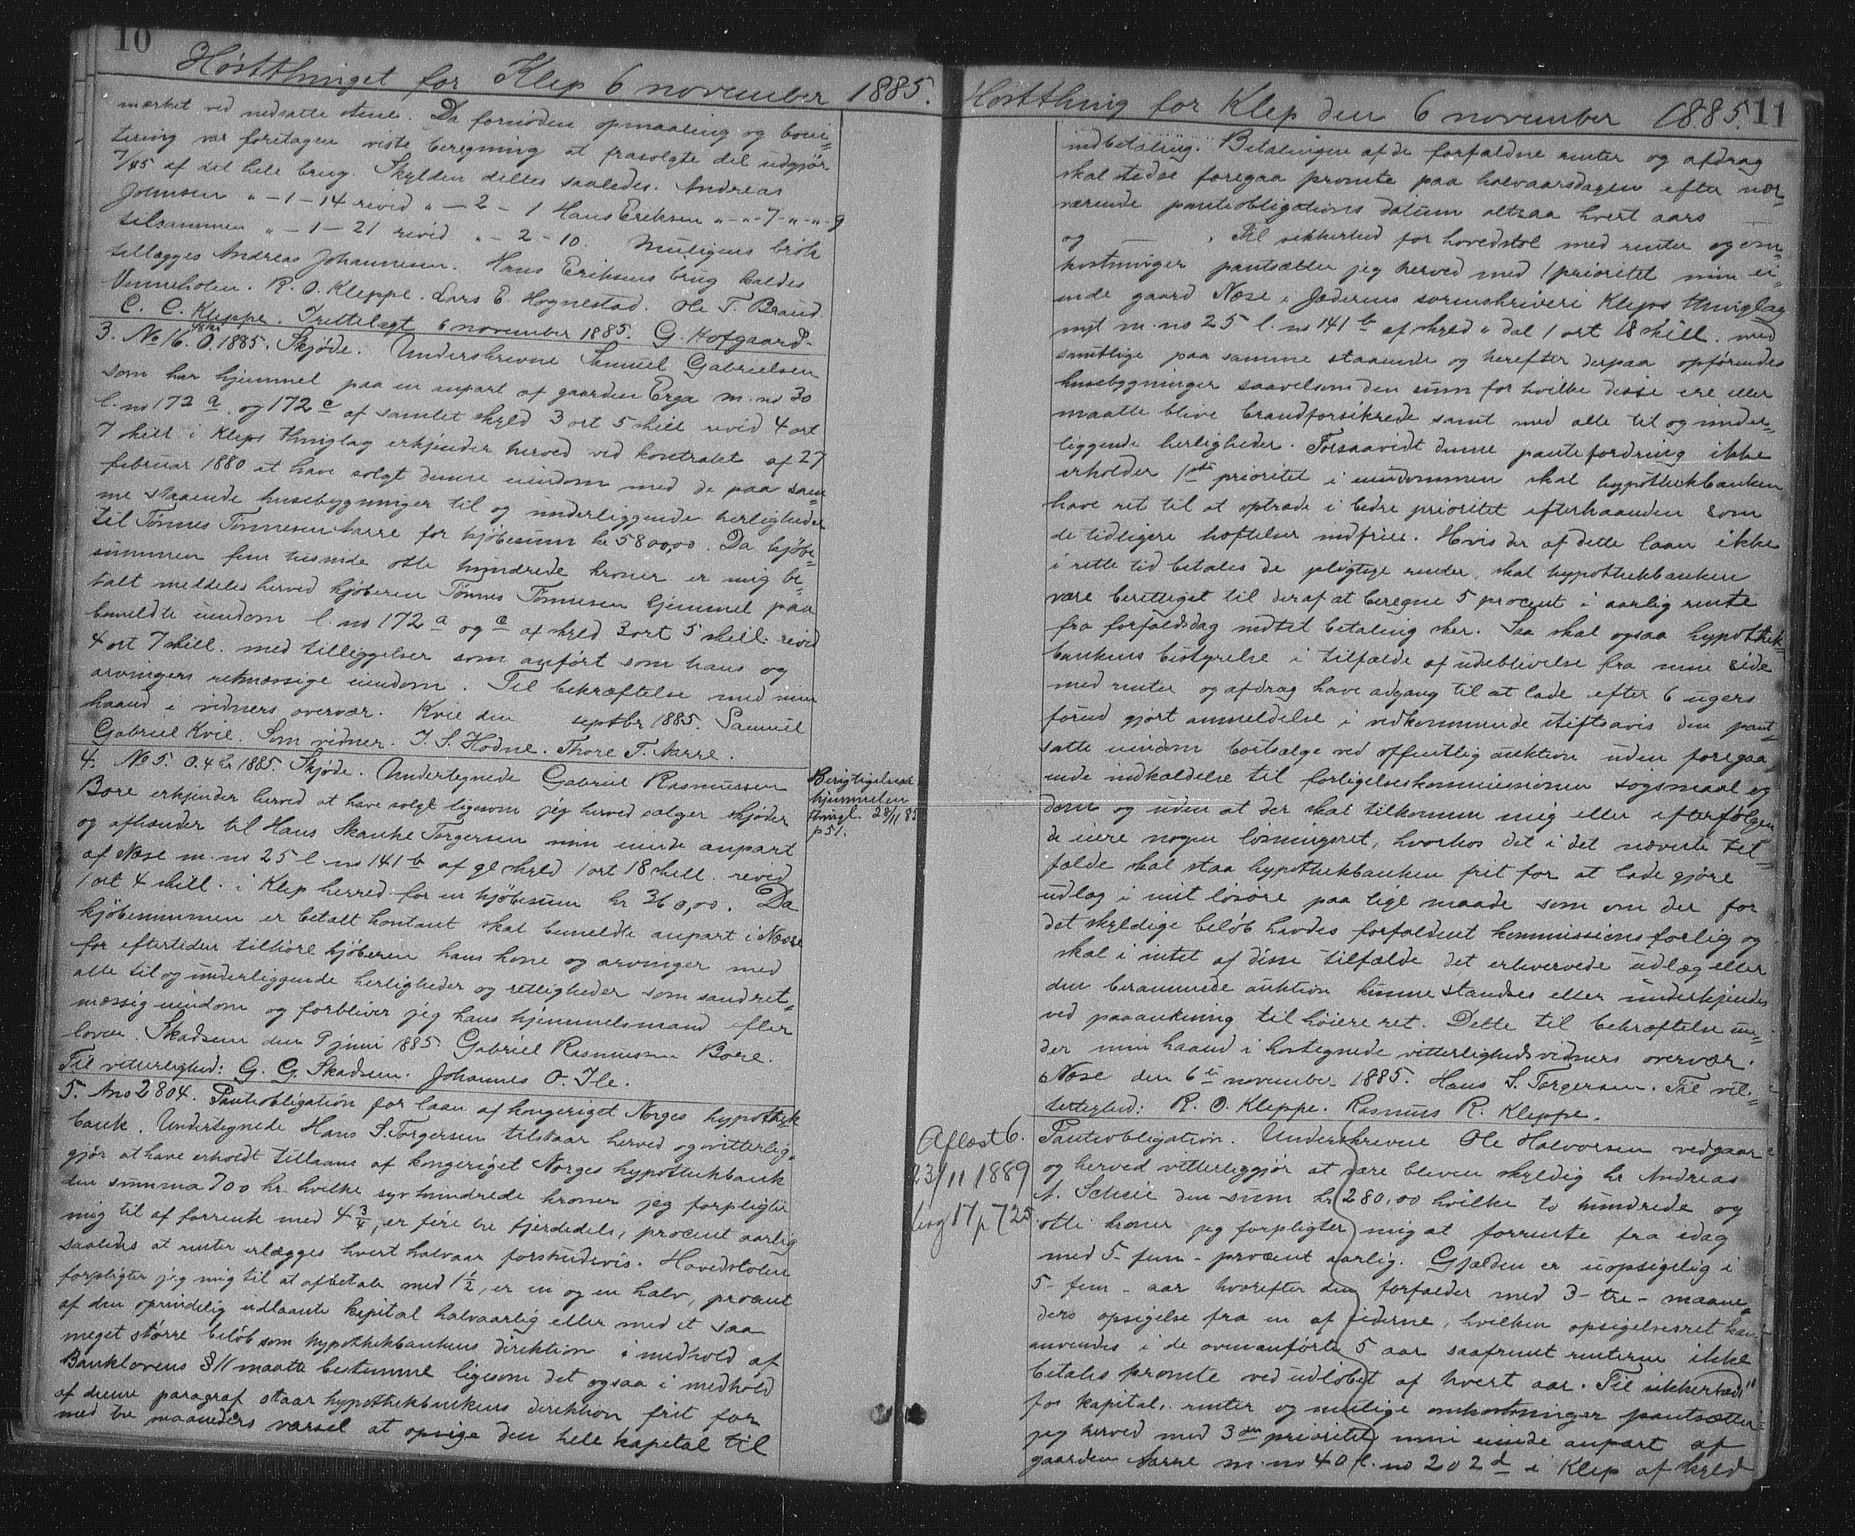 10
Høstthinget for Klep 6 november 1885.
mærket ved nedsatte stene. Da fornøden opmaaling og boni-
tering var foretagen viste beregning at frasolgte del udgjør
7/45 af det hele brug. Skylden deltes saaledes. Andreas
Johnsen " - 1 - 14 revid " - 2 - 1 Hans Eriksen " - " - 7 - " - " - 9
tilsammen " - 1 - 21 revid " - 2 - 10. Muligens brøk
tillægges Andreas Johannesen. Hans Eriksens brug kaldes
Venneholen. R. O. Kleppe. Lars E. Hognestad. Ole T. Braud.
C. C. Kleppe. Irettelagt 6 november 1885. G. Kofgaard.
3. No 16. O. 1885. Skjøde. Underskrevne Samuel Gabrielsen
som har hjemmel paa en anpart af gaarden Erga m. no 30
l. no 172 a og 172 c af samlet skyld 3 ort 5 skill revid 4 ort
7 skill i Kleps thinglag erkjender herved ved kontrakt af 27
februar 1880 at have solgt denne eiendom med de paa sam-
me staaende husebygninger til og underliggende herligheder
til Tønnes Tønnesen Aarre for kjøbesum kr 5800,00. Da kjøbe-
summen fem tusinde otte hundrede kroner er mig be-
talt meddeles herved kjøberen Tønnes Tønnesen hjemmel paa
bemeldte eiendom l. no 172 a og c af skyld 3 ort 5 skill. revid
4 ort 7 skill. med tilliggelser som anført som hans og
arvingers retmæssige eiendom. Til bekræftelse med min
haand i vidners overvær. Kvie den septbr 1885. Samuel
Gabriel Kvie. Som vidner. T. S. Hodne. Thore T. Aarre.
4. No 5. O. 4 kr 1885. Skjøde. Undertegnede Gabriel Rasmussen
Bore erkjender herved at have solgt ligesom jeg herved sælger skjøder
og afhænder til Hans Skanke Torgersen min eiende anpart
af Næse m. no 25 l. no 141 b af gl skyld 1 ort 18 skill. revid
1 ort 4 skill. i Klep herred for en kjøbesum kr 360,00. Da
kjøbesummen er betalt kontant skal bemeldte anpart i Næse
for eftertiden tilhøre kjøberen hans kone og arvinger med
alle til og underliggende herligheder og rettigheder som sand ret-
mæssig eiendom og forbliver jeg hans hjemmelsmand efter
loven. Skadsem den 9 juni 1885. Gabriel Rasmussen Bore.
Til vitterlighed: G. G. Skadsem. Johannes O. Ile.
Berigtigelse
hjemmelen
thingl. 28/11 85
p 51.
5. Ano 2804. Panteobligation for laan af kongeriget Norges hypothek-
bank. Undertegnede Hans S. Torgersen tilstaar herved og vitterlig-
gjør at have erholdt tillaans af kongeriget Norges hypothekbank
den summa 700 kr hvilke syv hundrede kroner jeg forpligter
mig til af forrente med 4 3/4, er fire tre fjerdedels, procent aarlig
saaledes at renter erlægges hvert halvaar forskudsvis. Hovedstolen
forpligter jeg mig til at afbetale med 1 1/2, er en og en halv, procent
af den oprindelig udlaante kapital halvaarlig eller med et saa
meget større beløb som hypothekbankens direktion i medhold af
Banklovens § 11 maatte bestemme ligesom det ogsaa i medhold
af denne paragraf staar hypothekbankens direktion frit for
med tre maaneders varsel at opsige den hele kapital til
Høstthing for Klep den 6 november 1885. 11
indbetaling. Betalingen af de forfaldne renter og afdrag
skal stedse foregaa promte paa halvaarsdagen efter nær-
værende panteobligations datum altsaa hvert aars —
og — . Til sikkerhed for hovedstol med renter og om-
kostninger pantsætter jeg herved med 1 prioritet min ei-
ende gaard Næse i Jæderens sorenskriveri Kleps thinglag
nyt m. no 25 l. no 141 b af skyld " dal 1 ort 18 skill. med
samtlige paa samme staaende og herefter derpaa opførendes
husebygninger saavelsom den sum for hvilke disse ere eller
maatte blive brandforsikrede samt med alle til og under-
liggende herligheder. Forsaavidt denne pantefordring ikke
erholder 1ste prioritet i eiendommen skal hypothekbanken
have ret til at optræde i bedre prioritet efterhaanden som
de tidligere hæftelser indfries. Hvis der af dette laan ikke
i rette tid betales de pligtige renter, skal hypothekbanken
være berettiget til deraf at beregne 5 procent i aarlig rente
fra forfaldsdag indtil betaling sker. Saa skal ogsaa hypothek-
bankens bestyrelse i tilfælde af udeblivelse fra min side
med renter og afdrag have adgang til at lade efter 6 ugers
forud gjort anmeldelse i vedkommende stiftsavis den pant-
satte eiendom bortsælge ved offentlig auktion uden foregaa-
ende indkaldelse til forligelseskommissionen søgsmaal og
dom og uden at der skal tilkomme mig eller efterfølgen-
de eiere nogen løsningsret, hvorhos det i det nævnte til-
fælde skal staa hypothekbanken frit for at lade gjøre
udlæg i mit løsøre paa lige maade som om der for
det skyldige beløb havdes forfaldent kommissionsforlig og
skal i intet af disse tilfælde det erhvervede udlæg eller
den berammede auktion kunne standses eller underkjendes
ved paaankning til høiere ret. Dette til bekræftelse un-
der min haand i hostegnede vitterlighedsvidners overvær.
Næse den 6te november 1885. Hans S. Torgersen. Til vit-
terlighed: R. O. Kleppe. Rasmus R. Kleppe.
Aflæst 6.
23/11 1889
bog 17 p 725
Panteobligation. Underskrevne Ole Halvorsen vedgaar
og herved vitterliggjør at være bleven skyldig hr Andreas
A. Scheie den sum kr 280,00 hvilke to hundrede og
otti kroner jeg forpligter mig at forrente fra idag
med 5 - fem - procent aarlig. Gjælden er uopsigelig i
5 - fem - aar hvorefter den forfalder med 3 - tre - maane-
ders opsigelse fra en af siderne, hvilken opsigelsesret kan
anvendes i de ovenanførte 5 aar saafremt renterne ikke
betales promte ved udløbet af hvert aar. Til sikkerhed
for kapital, renter og mulige omkostninger pantsætter
jeg herved med 3die prioritet min eiende anpart af
gaarden Aarre m. no 40 l. no 202 d i Klep af skyld